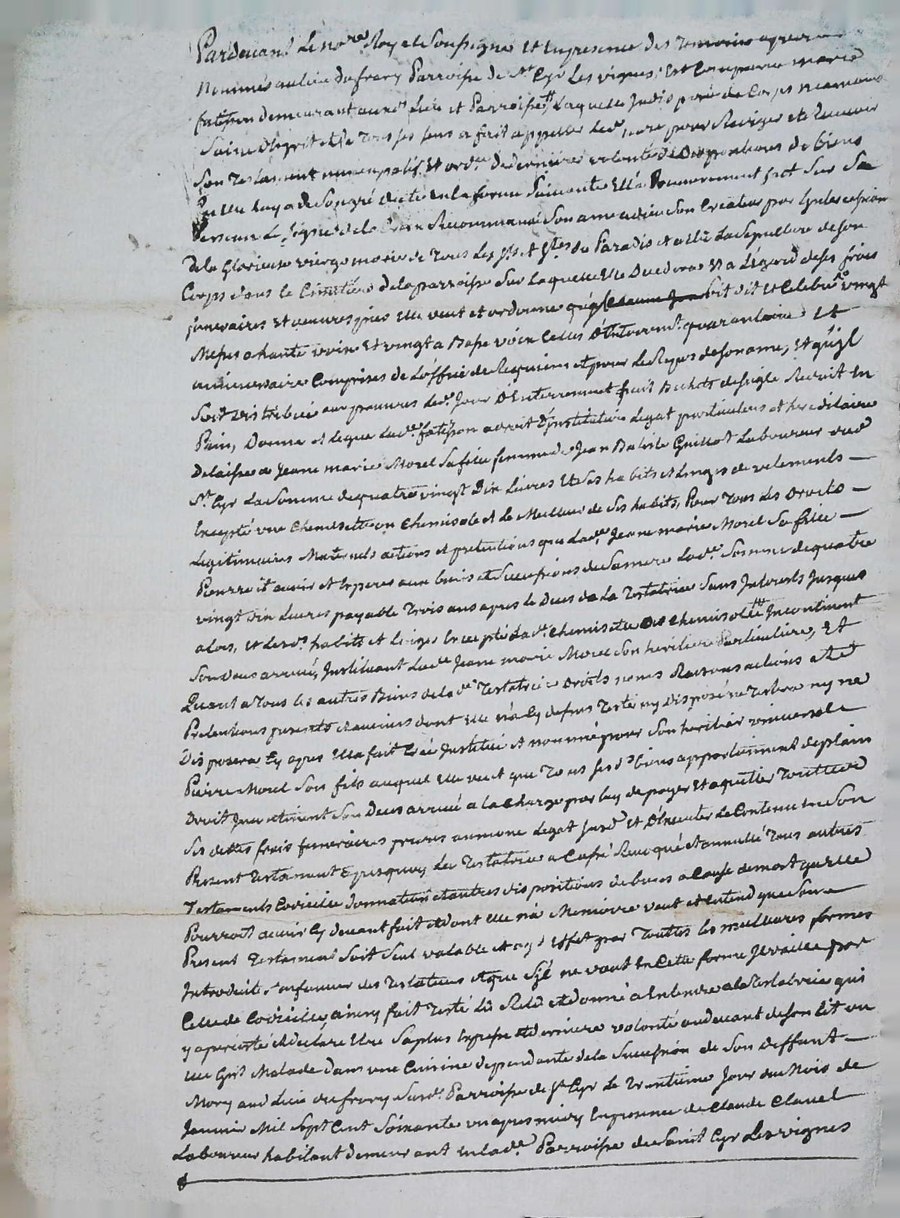 Pardevant Le no.re Royal Soussigné Et En presence des Temoins apres
Nommés au lieu du frary Parroisse de St Cyr Les vignes, Est Comparue marie
fatisson demeurant aud.t Lieu et Parroisse, Laquelle Jndisposée de Corps neamoins
Saine d'Esprit et de Tous ses sens a fait appeller led.t no.re pour Rediger et Recevoir
Son Testament nuncupatif, Et ord.ce de derniere volonté Et Dispositions de biens
qu'Elle luy a de Son gré dicté En la forme Suivante Elle a Premierement fait Sur Sa
Personne Le Signe de la Croix Recommandé Son ame a dieu Son Createur par Lintercession
De la Glorieuse vierge marie de Tous Les Sts. et Stes. du Paradis et a Elû La Sepulture de son
Corps dans le Cimitiere de la parroisse Sur Laquelle Elle Decedera Et a L'Egard de ses frais
funeraires Et oeuvres pies Elle veut et ordonne qu'il Soit dit et Celebré vingt
Messes a haute voix Et vingt a Basse voix Celles D'Enterrem.t quarantaine Et
anniversaire Comprises de L'office de Requiem et pour Le Repos de Son ame, Et qu'il
Soit Distribué aux pauvres led.t Jour D'Enterrement huit Bichets de Seigle Reduit En
Pain, Donne et legue lad.te fatisson a droit D'institution Legat particulier et hereditaire
Delaisse a Jeanne marie Morel Sa fille femme de Jean Batiste Guillot Laboureur dud.t
St. Cyr La Somme de quatre vingt Dix Livres Et Ses habits et Linges de vetements —
Excepté une Chemisette ou Chemisole et Le Meilleur de Ses habits, Pour Tous Les Droits —
Legitimaires Maternels actions et pretentions que lad.te Jeanne marie Morel Sa fille —
Pourroit avoir et Esperer aux biens et Successions de Sa mere Lad.te Somme de quatre
vingt Dix Livres payable Trois ans apres le Deces de La Testatrice Sans Jnterests Jusques
alors, et Lesd.ts habits et Linges Excepté lad.te Chemisette ou Chemisolle Jncontinent
Son Deces arrivé, Jnstituant Lad.te Jeanne marie Morel Son heritiere Particuliere, Et
Quant a Tous les autres Biens de la d.te Testatrice Droits noms Raisons actions Et
Pretentions presents et avenirs dont Elle n'a Cy dessus Testé ny Disposé ne Testera ny ne
Disposera Cy apres Elle a fait Créé Jnstitué Et nommé pour Son heritier universelle
Pierre Morel Son fils auquel Elle veut que Tous Ses d.ts biens appartiennent de plain
Droit Jncontinent Son Deces arrivé a la Charge par luy de payer Et aquitter Toutes
Ses dettes frais funeraires prieres aumone legat Susd.t Et D'Executer Le Contenu En Son
Present Testament Epuisquoy La Testatrice a Cassé Revoqué et annullé Tous autres
Testaments Codicille donnations et autres dispositions de biens a Cause de mort qu'Elle
Pourroit avoir Cy devant fait et dont Elle n'a Memoire veut et Entend que Son
Present Testament Soit Seul valable et ay Effet par Toutes les meilleures formes
Jntroduites En faveur des Testateurs Et que S'il ne vaut En Cette forme Jl vaille par
Celle de Codicille, ainsy fait Testé Lû Relu et donné a Entendre a la Testatrice qui
y a persisté et declaré Etre Sa plus Expresse Et derniere volonté au devant de Son Lit ou
Elle Git Malade Dans une Cuisine dependante de la Succession de Son deffunt —
Mary aud.t Lieu du frary Susd.te Parroisse de St Cyr Le Trentieme Jour du Mois de
Janvier Mil Sept Cent Soixante un apres midy En presence de Claude Clavel
Laboureur habitant demeurant En lad.te Parroisse de Saint Cyr Les vignes